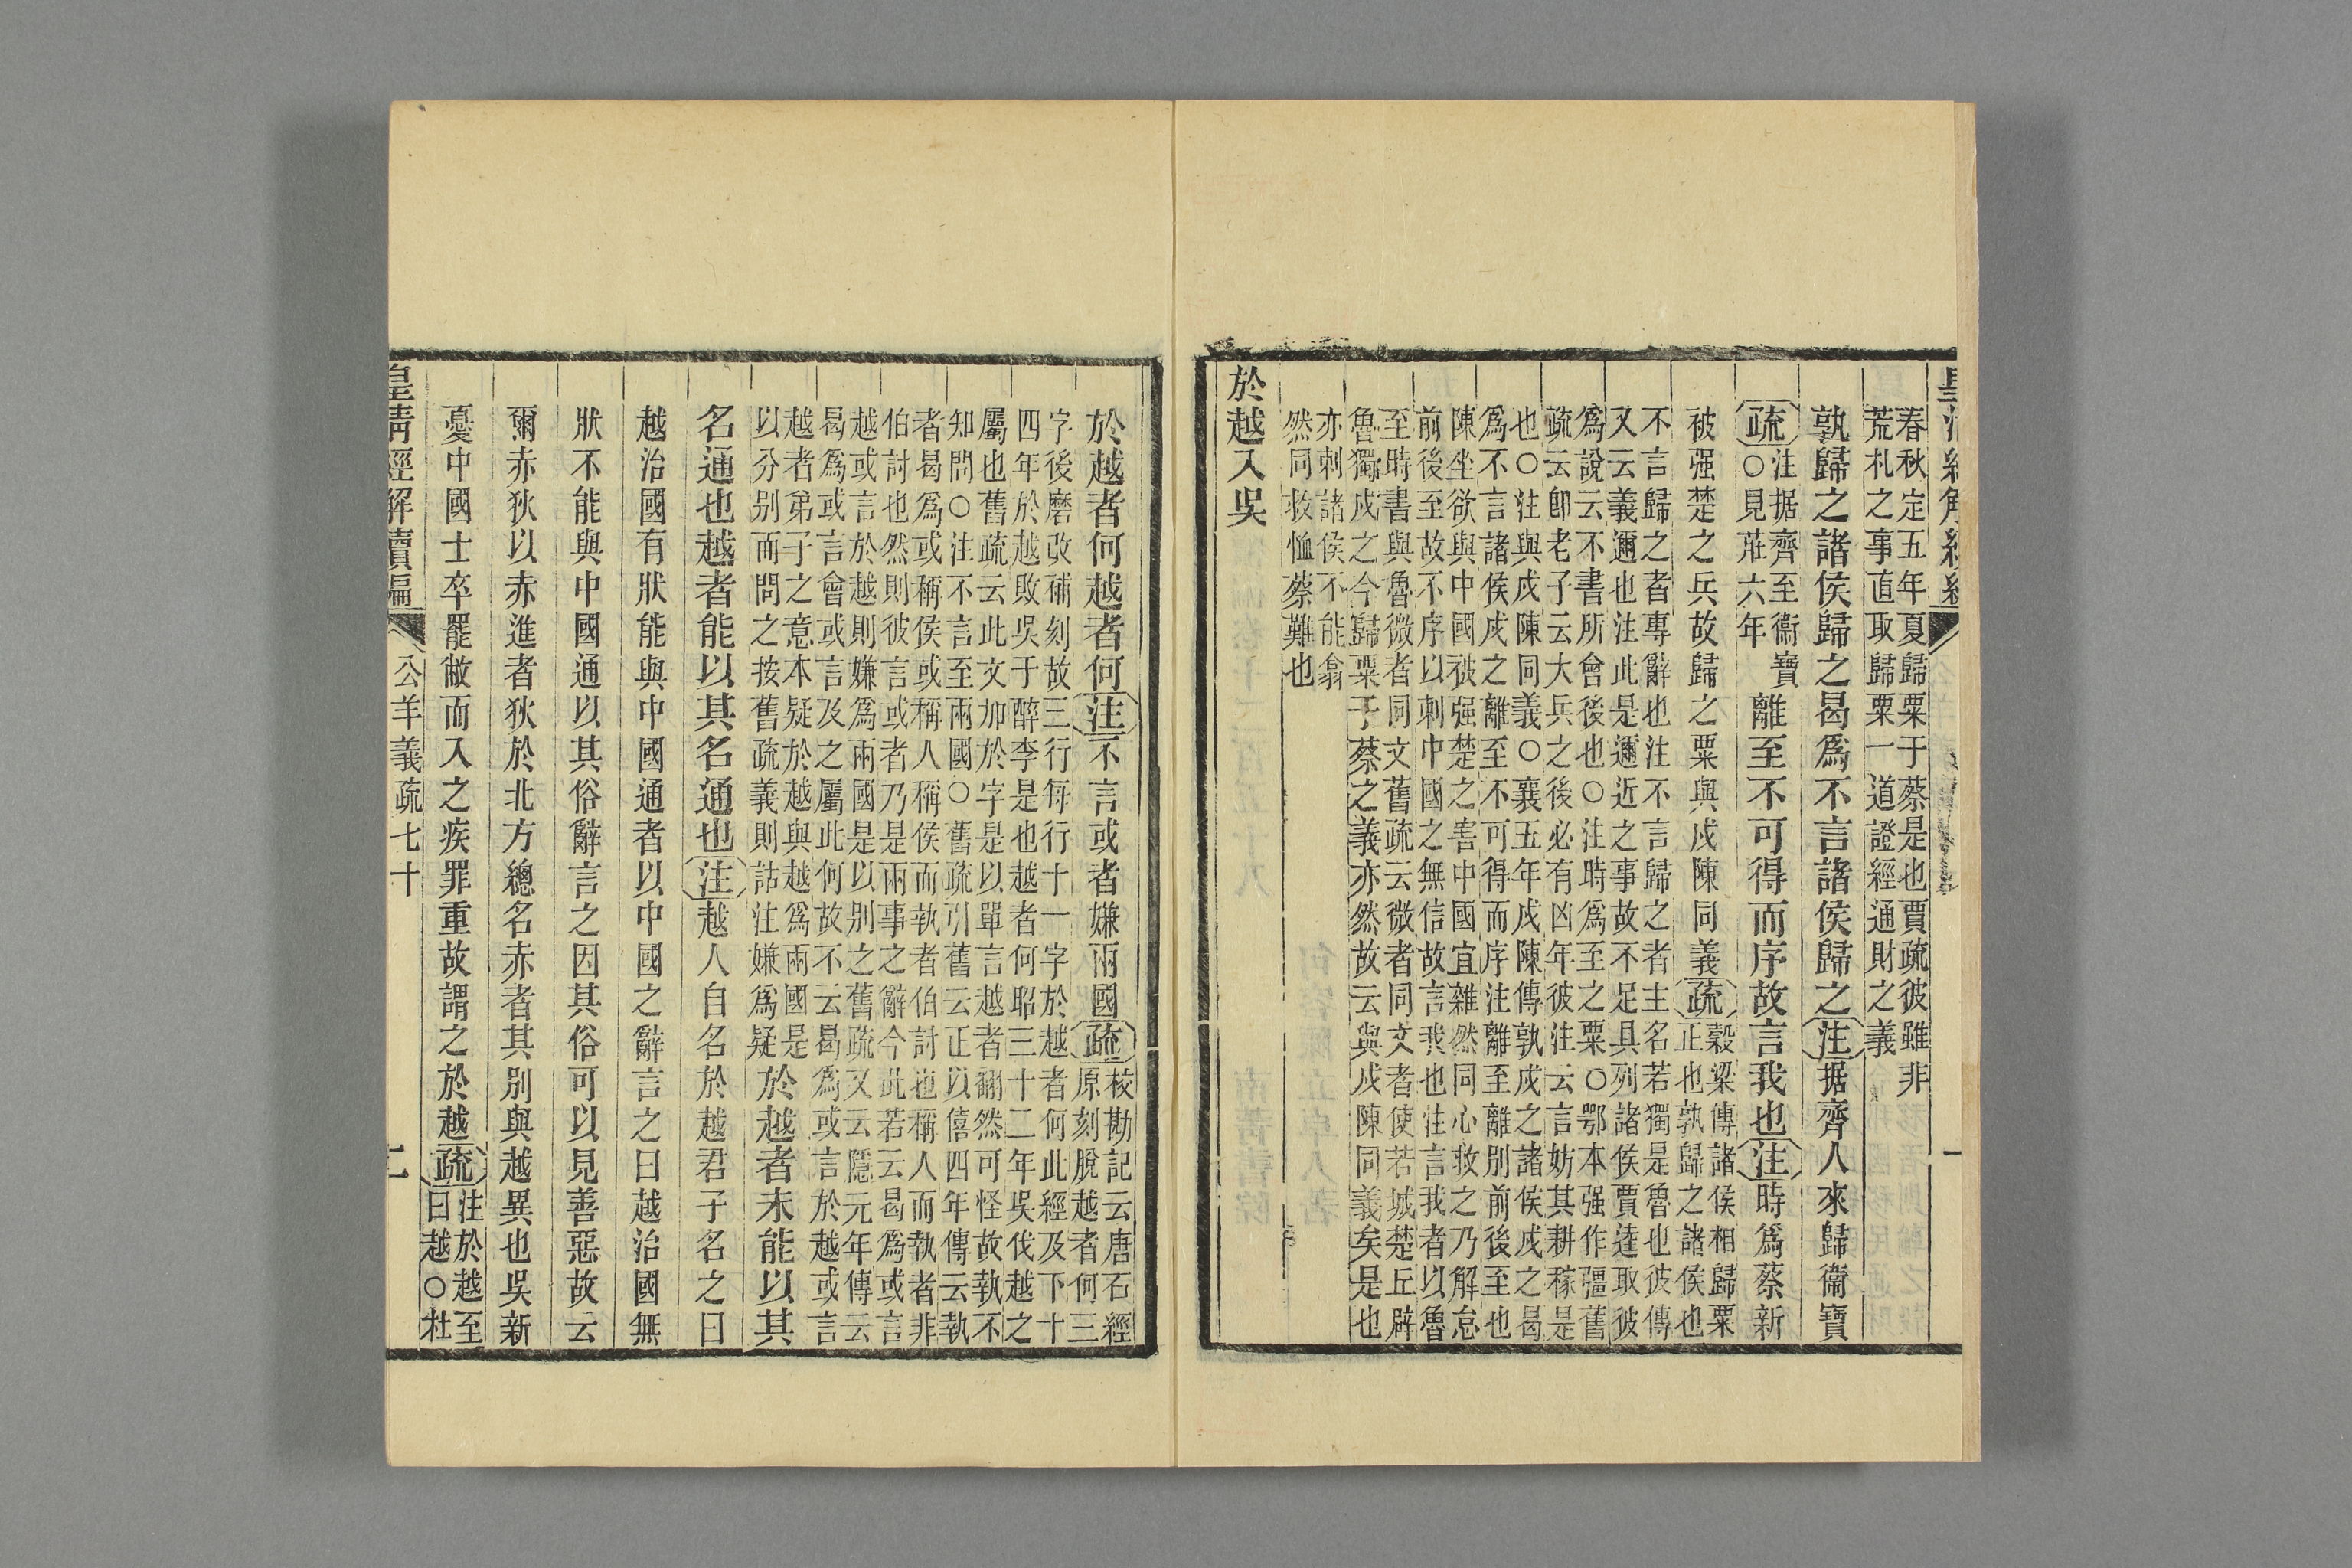 春秋定五年夏歸粟于蔡是也賈疏彼雖非
荒札之事直取歸粟一道證經通財之義
孰歸之諸侯歸之曷爲不言諸侯歸之注据齊人來歸衞寶
疏注据齊至衞寶
○見莊六年
離至不可得而序故言我也注時爲蔡新
被强楚之兵故歸之粟與戍陳同義疏穀梁傳諸侯相歸粟
正也孰歸之諸侯也
不言歸之者專辭也注不言歸之者主名若獨是魯也彼傳
又云義邇也注此是邇近之事故不足具列諸侯賈逵取彼
爲說云不書所會後也○注時爲至之粟○鄂本强作彊舊
疏云卽老子云大兵之後必有凶年彼注云言妨其耕稼是
也○注與戍陳同義○襄五年戍陳傳孰戍之諸侯戍之曷
爲不言諸侯戍之離至不可得而序注離至離別前後至也
陳坐欲與中國被强楚之害中國宜雜然同心救之乃解怠
前後至故不序以刺中國之無信故言我也注言我者以魯
至時書與魯微者同文舊疏云微者同文者使若城楚丘辟
魯獨戍之今歸粟于蔡之義亦然故云與戍陳同義矣是也
亦刺諸侯不能翁
然同救恤蔡難也
於越入吳
於越者何越者何注不言或者嫌兩國疏校勘記云唐石經
原刻脫越者何三
字後磨改補刻故三行每行十一字於越者何此經及下十
四年於越敗吳于醉李是也越者何昭三十二年吳伐越之
屬也舊疏云此文加於字是以單言越者翻然可怪故執不
知問○注不言至兩國○舊疏引舊云正以僖四年傳云執
者曷爲或稱侯或稱人稱侯而執者伯討也稱人而執者非
伯討也然則彼言或者乃是兩事之辭今此若云曷爲或言
越或言於越則嫌爲兩國是以別之舊疏又云隱元年傳云
曷爲或言會或言及之屬此何故不云曷爲或言於越或言
越者弟子之意本疑於越與越爲兩國是
以分別而問之按舊疏義則詁注嫌爲疑
於越者未能以其
名通也越者能以其名通也注越人自名於越君子名之曰
越治國有狀能與中國通者以中國之辭言之曰越治國無
狀不能與中國通以其俗辭言之因其俗可以見善惡故云
爾赤狄以赤進者狄於北方總名赤者其別與越異也吳新
憂中國士卒罷敝而入之疾罪重故謂之於越疏注於越至
曰越○杜
皇清經解續編 公羊義疏七十 二